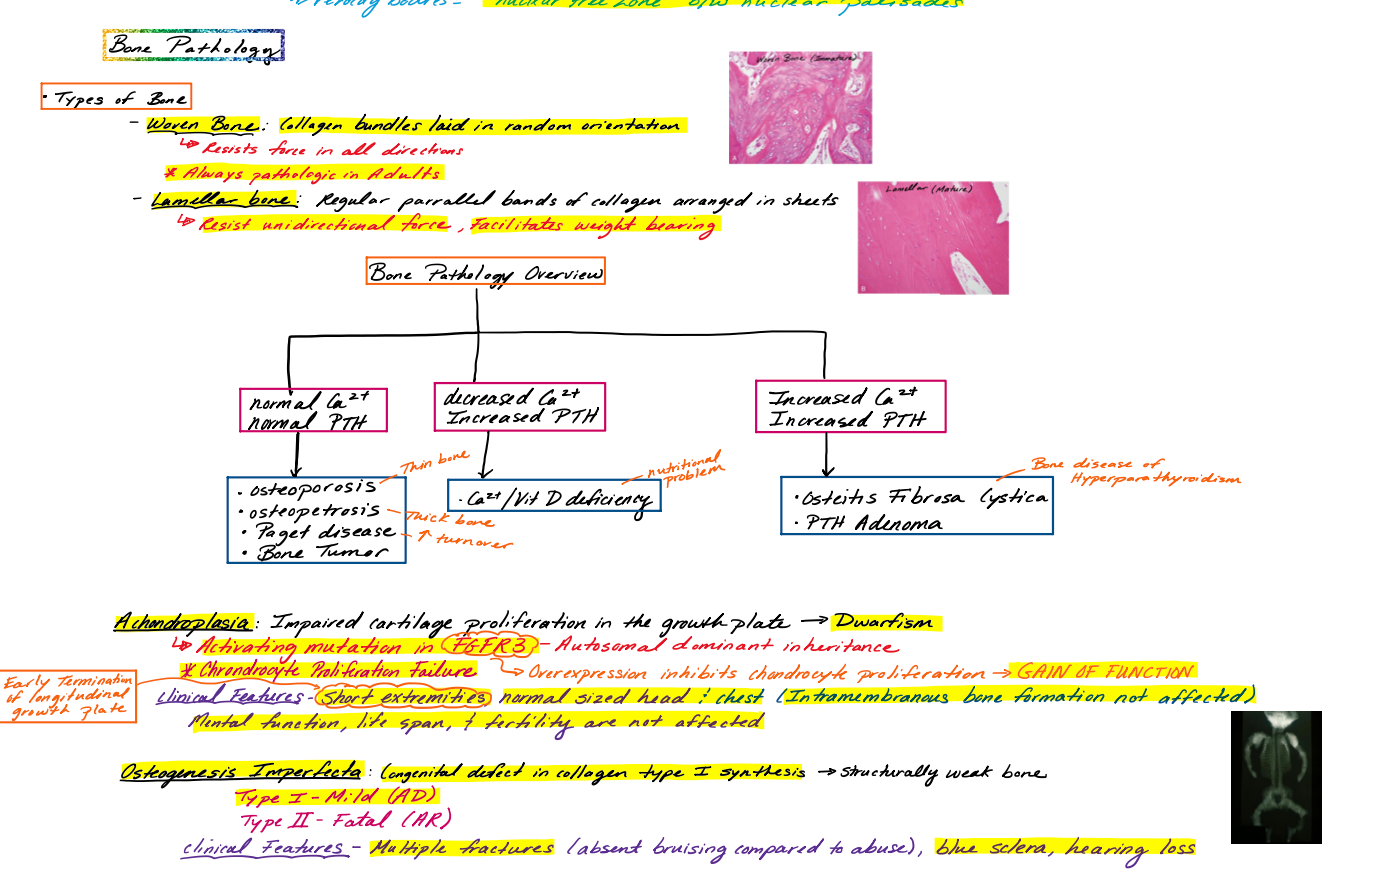 ↳ Verocay Bodies - "nuclear free zone" b/w nuclear palisades
Bone Pathology
• Types of Bone
- Woven Bone: Collagen bundles laid in random orientation
↳ Resists force in all directions
* Always pathologic in Adults
- Lamellar bone: Regular parrallel bands of collagen arranged in sheets
↳ Resist unidirectional force, Facilitates weight bearing
Woven Bone (Immature)
A
Lamellar (Mature)
B
Bone Pathology Overview
normal Ca²⁺
normal PTH
decreased Ca²⁺
Increased PTH
Increased Ca²⁺
Increased PTH
• osteoporosis
Thin bone
• osteopetrosis
Thick bone
• Paget disease
↑ turnover
• Bone Tumor
• Ca²⁺/Vit D deficiency
nutritional
problem
• Osteitis Fibrosa Cystica
• PTH Adenoma
Bone disease of
Hyperparathyroidism
Achondroplasia: Impaired cartilage proliferation in the growth plate → Dwarfism
↳ Activating mutation in FGFR3 - Autosomal dominant inheritance
* Chrondrocyte Prolifration Failure ↳ Overexpression inhibits chondrocyte proliferation → GAIN OF FUNCTION
Early Termination
of longitudinal
growth plate
Clinical Features - Short extremities, normal sized head & chest (Intramembranous bone formation not affected)
Mental function, life span, & fertility are not affected
Osteogenesis Imperfecta: Congenital defect in collagen type I synthesis → structurally weak bone
Type I - Mild (AD)
Type II - Fatal (AR)
Clinical Features - Multiple fractures (absent bruising compared to abuse), blue sclera, hearing loss